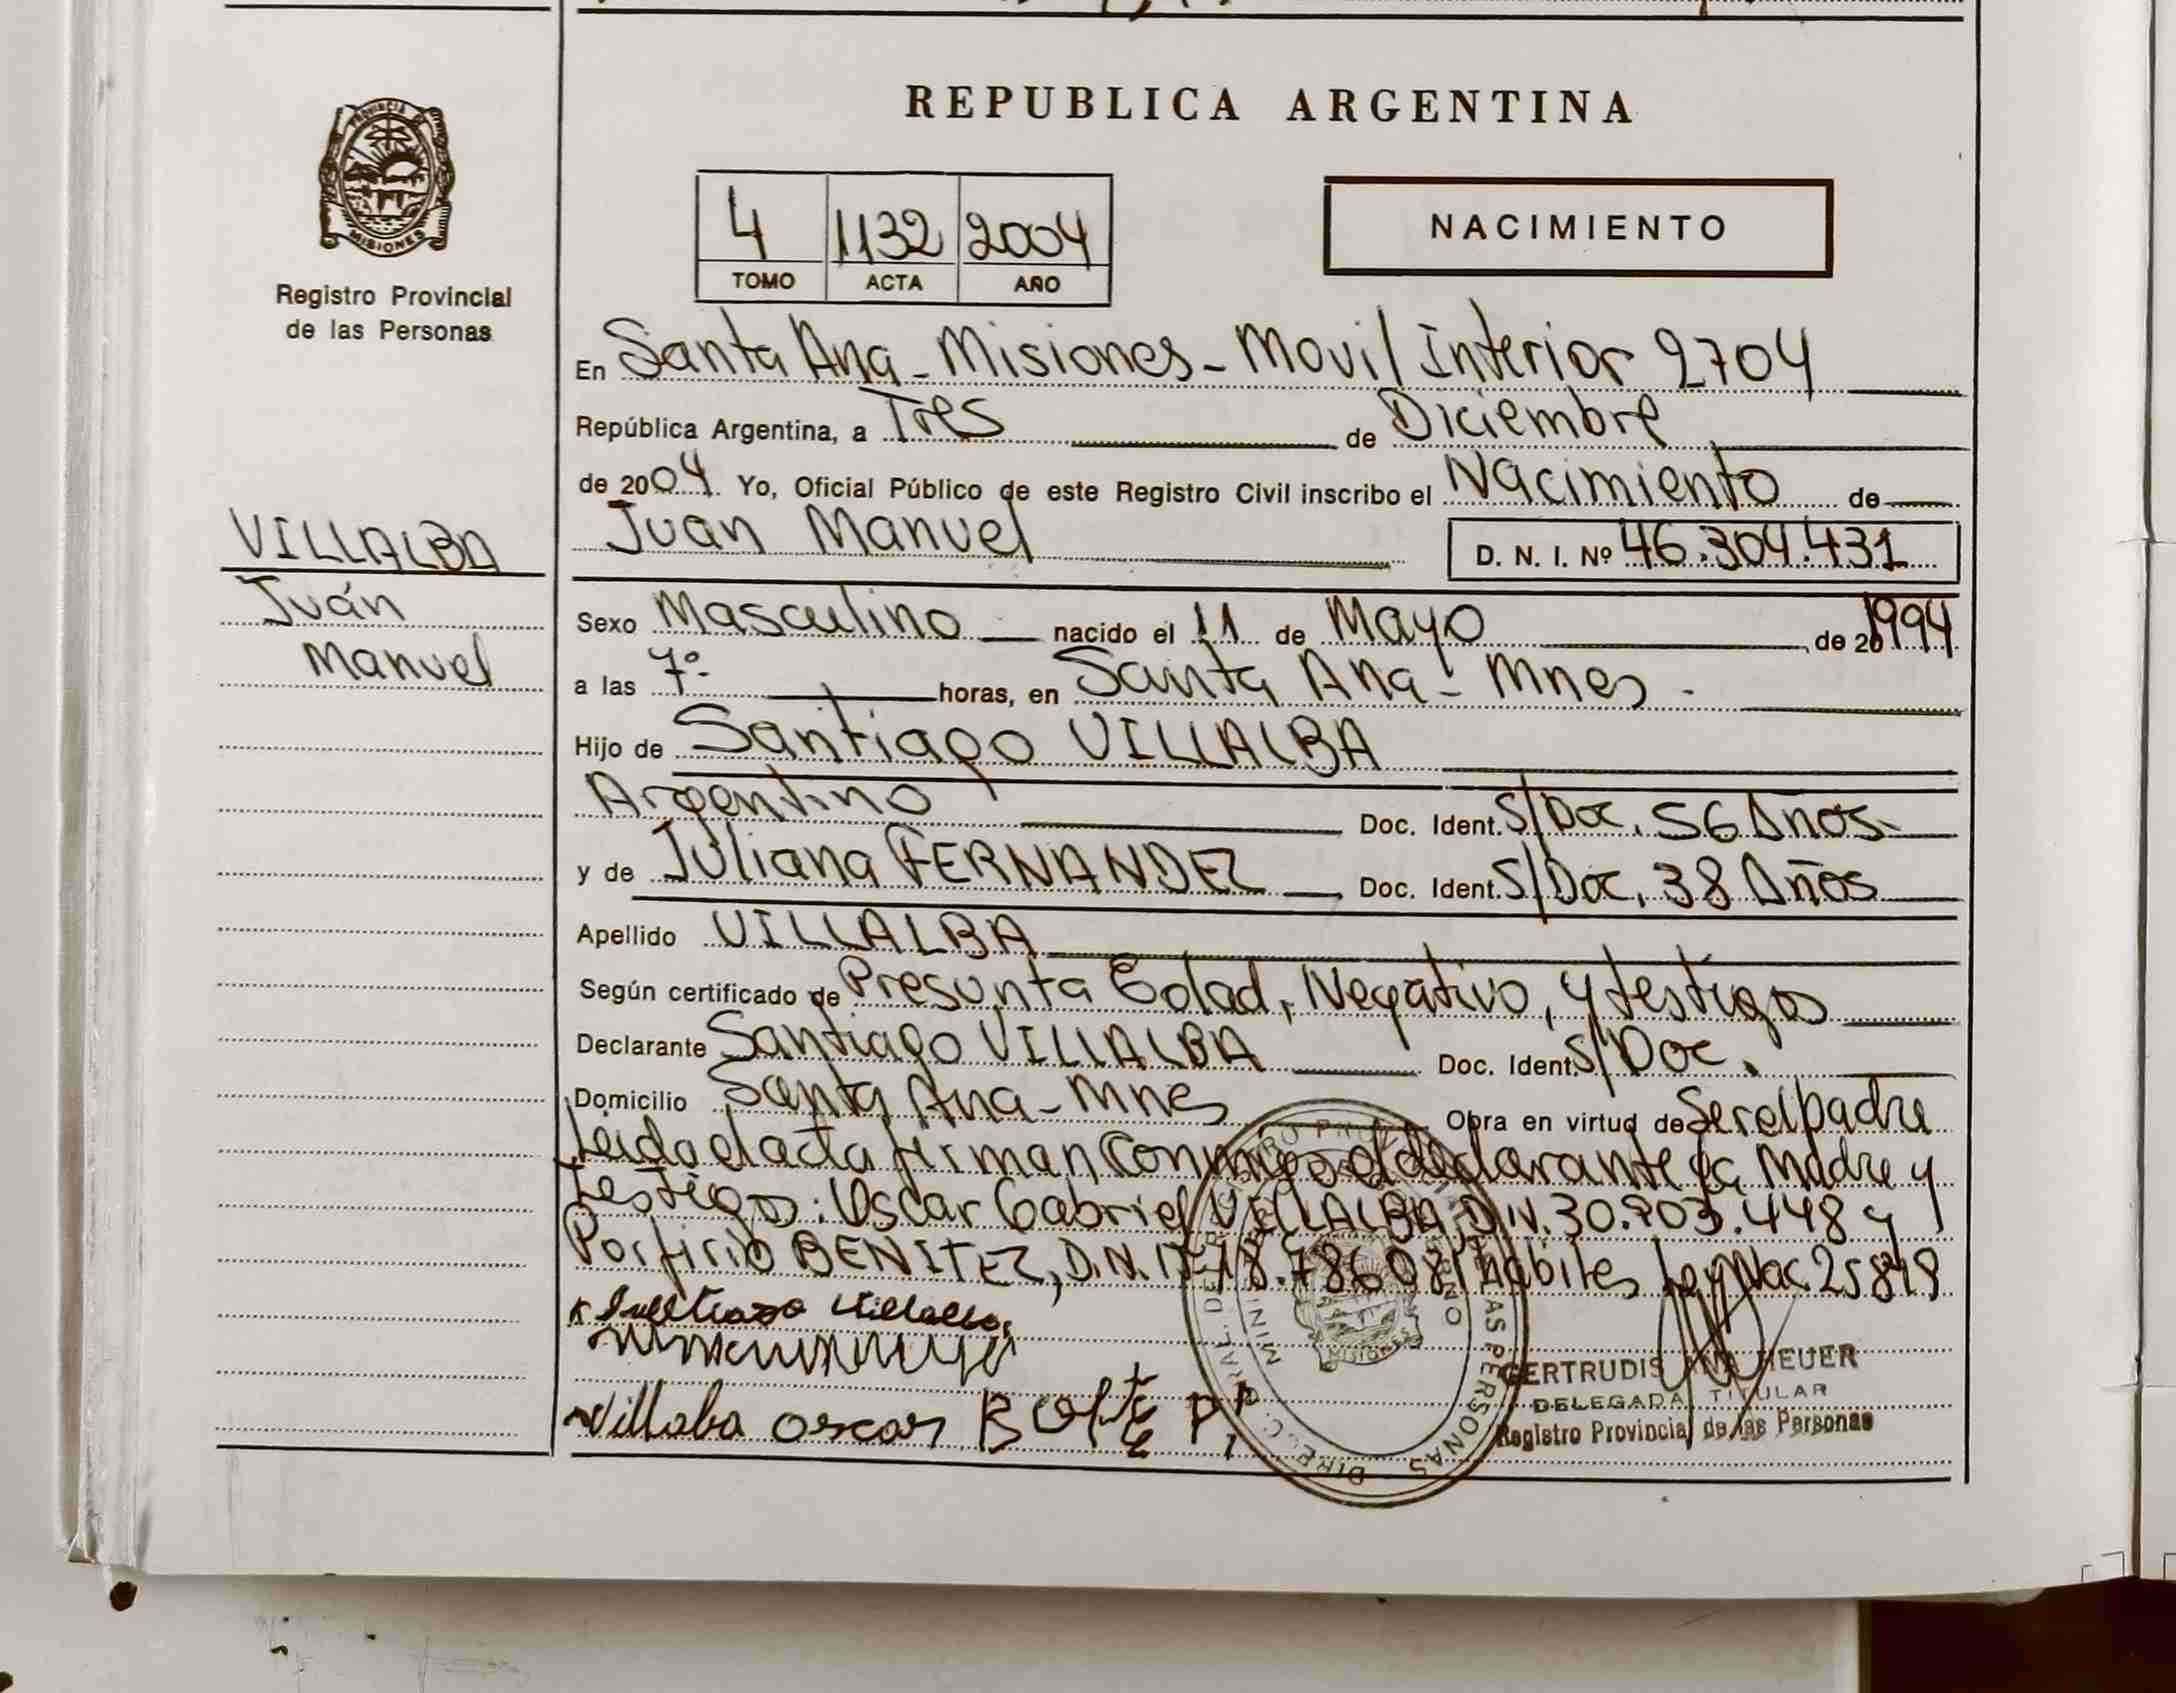 REPUBLICA ARGENTINA
PROVINCIA DE
MISIONES
Registro Provincial
de las Personas
4 1132 2004
TOMO ACTA AÑO
NACIMIENTO
En Santa Ana - Misiones - Movil Interior 2704
República Argentina, a Tres de Diciembre
de 2004 Yo, Oficial Público de este Registro Civil inscribo el Nacimiento de
VILLALBA
Juán
Manuel
Juan Manuel D. N. I. Nº 46.304.431
Sexo Masculino nacido el 11 de Mayo de 20 1994
a las 7º horas, en Santa Ana - Mnes.
Hijo de Santiago VILLALBA
Argentino Doc. Ident. S/Doc. 56 Años
y de Juliana FERNANDEZ Doc. Ident. S/Doc. 38 Años
Apellido VILLALBA
Según certificado de Presunta Edad, Negativo, y testigos
Declarante Santiago VILLALBA Doc. Ident. S/Doc.
Domicilio Santa Ana - Mnes Obra en virtud de Ser el padre
Leida el acta firman Conmigo el declarante la Madre y
testigos: Oscar Gabriel VILLALBA D.N. 30.903.448 y
Porfirio BENITEZ, D.N.I. 18.786081 habiles Ley Nac. 25819
Villalba
Villalba oscar
GERTRUDIS ANA HEUER
DELEGADA TITULAR
Registro Provincial de las Personas